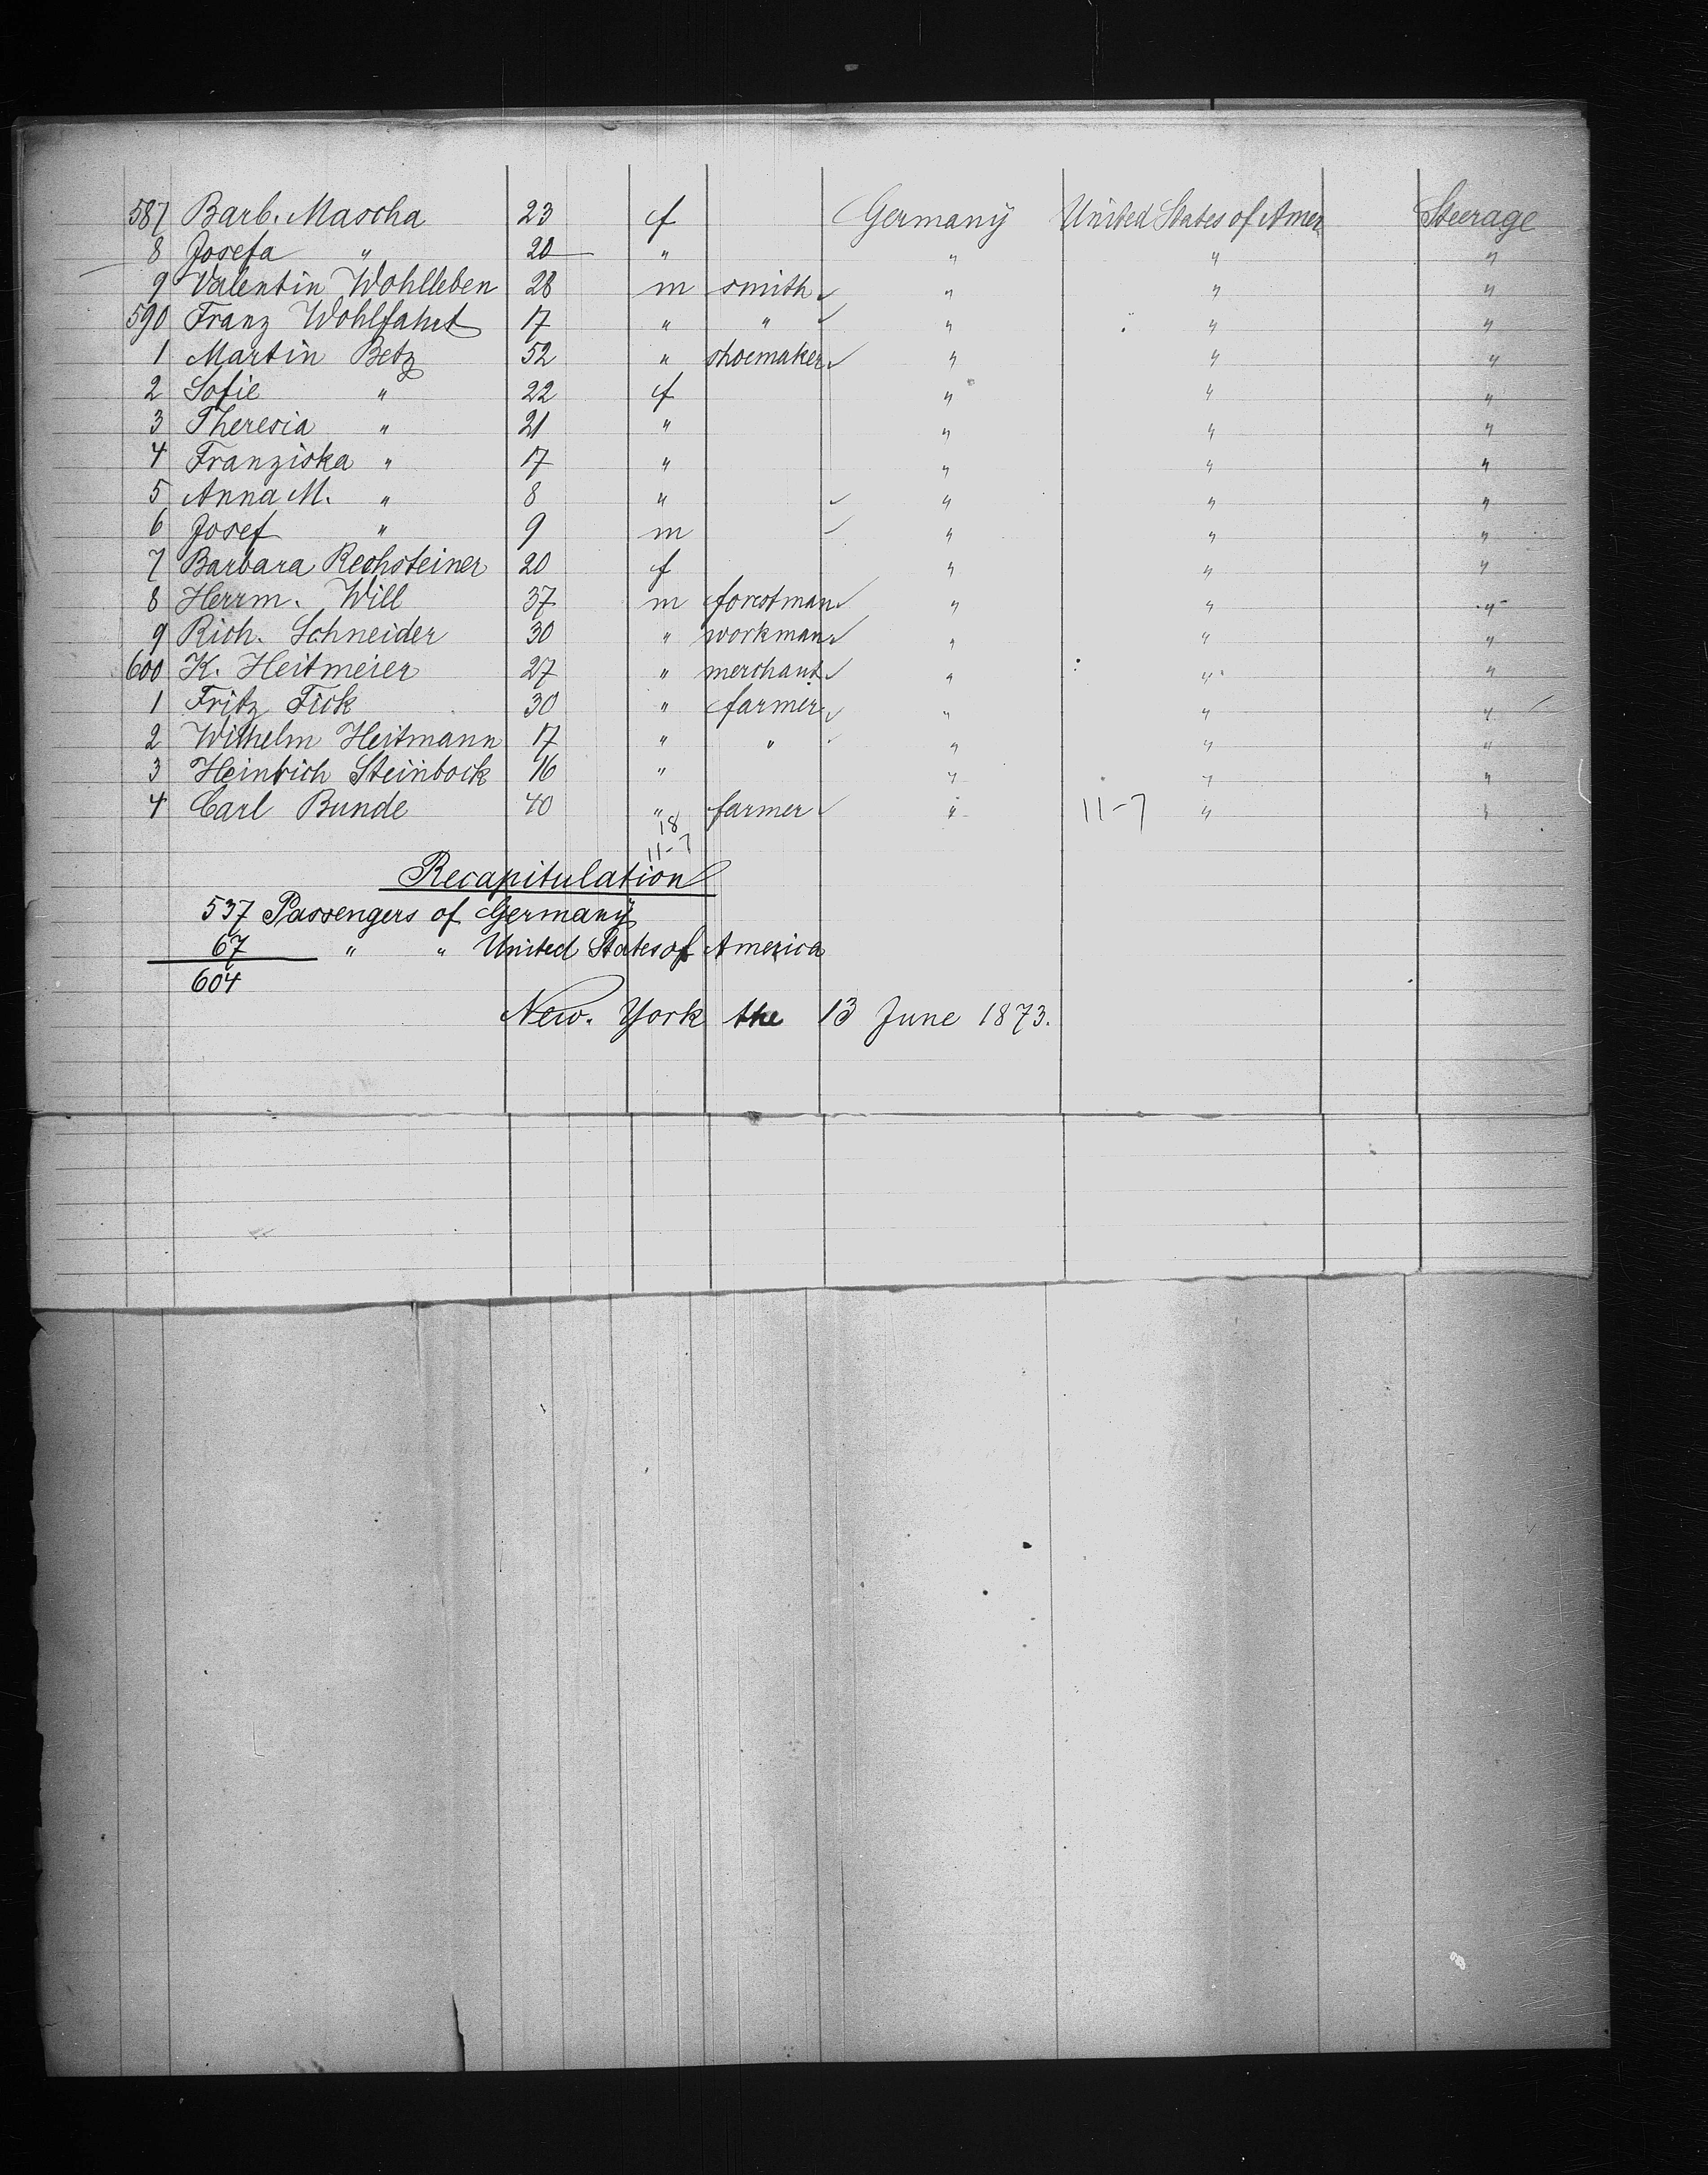 587 Barb. Mascha 23 f Germany United States of Amer Steerage
8 Josefa " 20 " " " "
9 Valentin Wohlleben 28 m smith " " "
590 Franz Wohlfahrt 17 " " " " "
1 Martin Betz 52 " shoemaker " " "
2 Sofie " 22 f " " "
3 Theresia " 21 " " " "
4 Franziska " 17 " " " "
5 Anna M. " 8 " " " "
6 Josef " 9 m " " "
7 Barbara Rechsteiner 20 f " " "
8 Herrm. Will 37 m forestman " " "
9 Rich. Schneider 30 " workman " " "
600 K. Heitmeier 27 " merchant " " "
1 Fritz Fick 30 " farmer " " "
2 Wilhelm Heitmann 17 " " " " "
3 Heinrich Steinbock 16 " " " "
4 Carl Bunde 40 " farmer " 11-7 " "
18
11-7
Recapitulation
537 Passengers of Germany
67 " " United States of America
604
New. York the 13 June 1873.